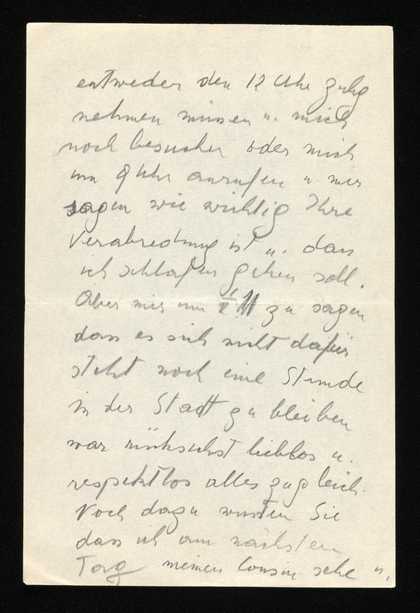 entweder den 12 Uhr Zug
nehmen müssen u. mich
noch besuchen oder mich
um 9 Uhr anrufen u. mir
sagen wie wichtig Ihre
Verabredung ist u. dass
ich schlafen gehen soll.
Aber mir um zu sagen
dass es sich nicht dafür
steht noch eine Stunde
in der Stadt zu bleiben
war lieblos u.
respektlos alles zugleich.
Noch dazu wussten Sie
dass ich am nächsten
Tag meinen Cousin sehe u.